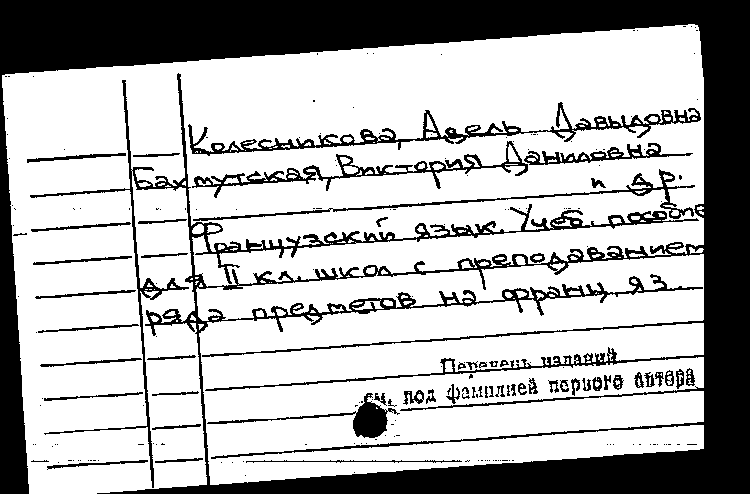 Колесникова, Адель Давыдовна
Бахмутская, Виктория Даниловна
и др.
Французский язык. Учеб. пособие
для II кл. школ с преподаванием
ряда предметов на франц. яз.
Перечень изданий
см. под фамилией первого автора